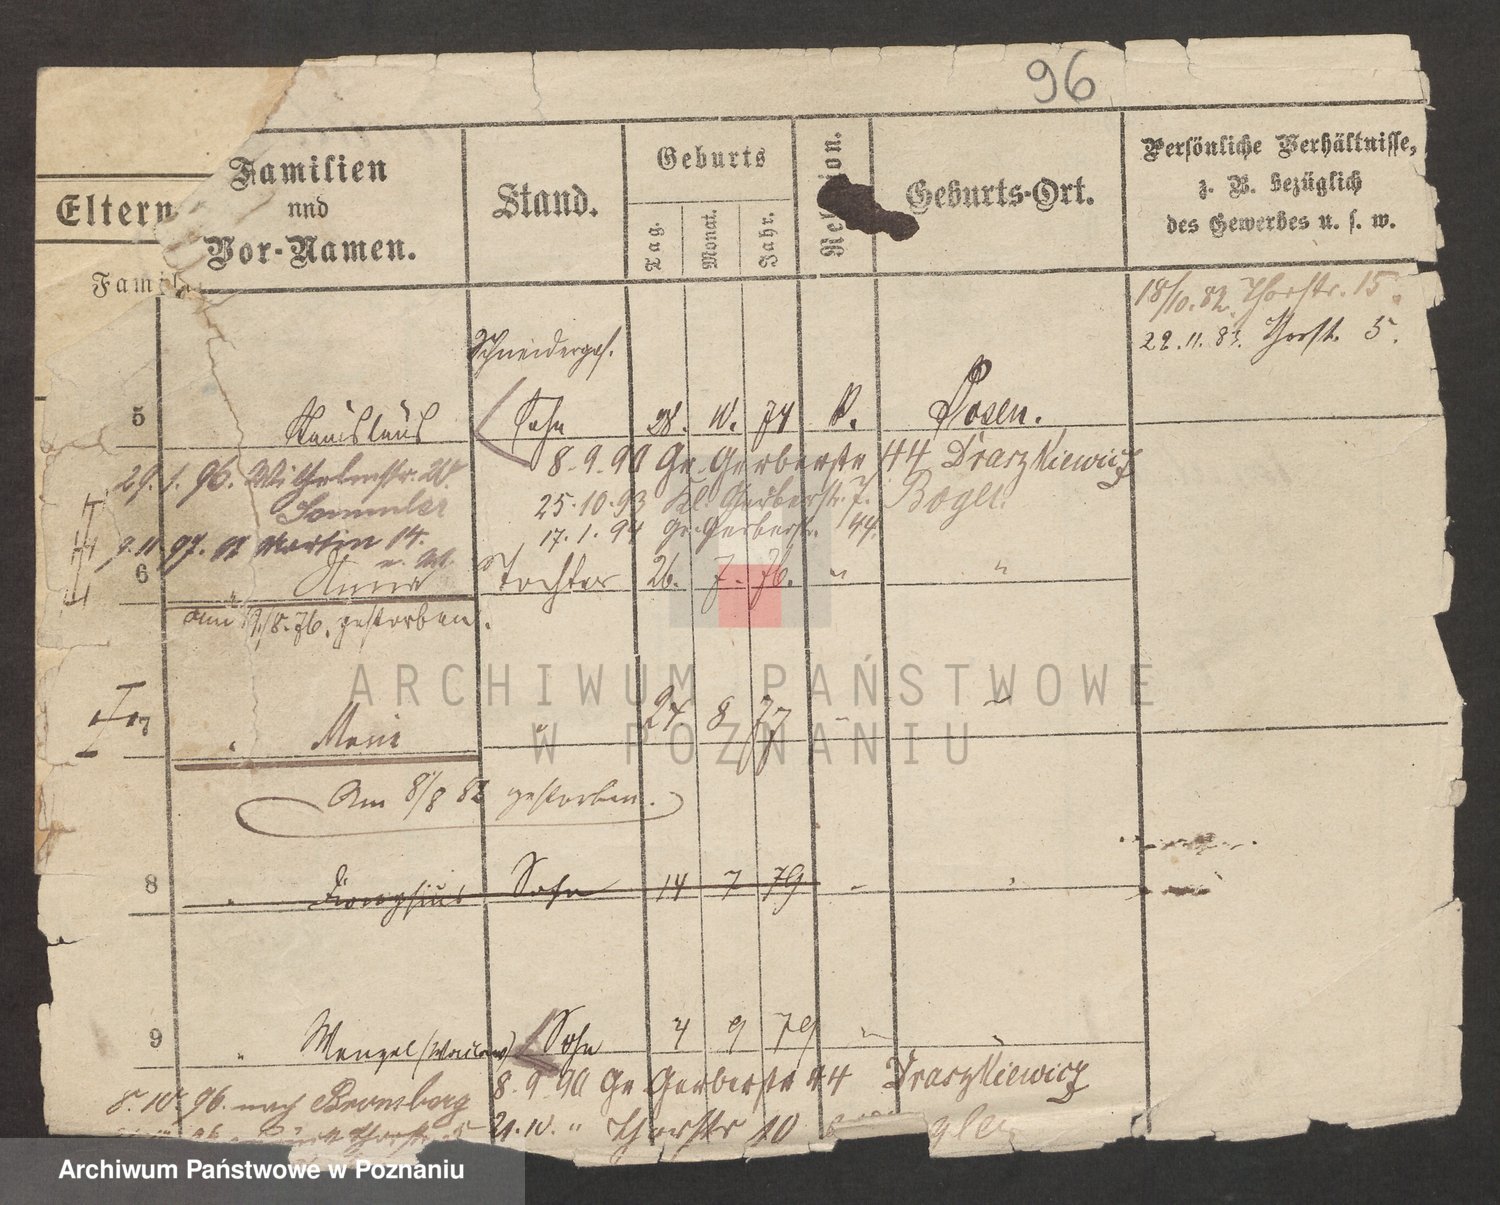 96
Eltern
Familien und Vor-Namen.
Stand.
Geburts
Tag. Monat. Jahr.
Geburts-Ort.
Persönliche Verhältnisse,
z. B. bezüglich
des Gewerbes u. s. w.
18/10. 82. Thorstr. 15.
22. 11. 83. Thorst. 5.
Schneiderges.
5 Stanislaus Sohn 28. 10. 74 K. Posen.
8. 9. 90 Gr. Gerberstr 44 Draszkiewicz
29. 1. 96. Wilhelmstr. 20.
Sommler
25. 10. 93 Kl. Gerberstr. 7. Bogler
17. 1. 94 Gr. Gerberstr. 44.
9. 11 97. St Martin 14.
6 Anna Tochter 26. 7. 76. " "
am 19/8. 76. gestorben.
7 " Marie " 24 8 77 "
Am 8/8 82 gestorben.
8 " Dionysius Sohn 14 7 79 "
9 " Wenzel (Waclaw) Sohn 4 9 79 "
8. 9. 90 Gr Gerberstr 44 Draszkiewicz
8. 10. 96. nach Bromberg
21. 10. " Thorstr 10
ARCHIWUM PAŃSTWOWE
W POZNANIU
Archiwum Państwowe w Poznaniu